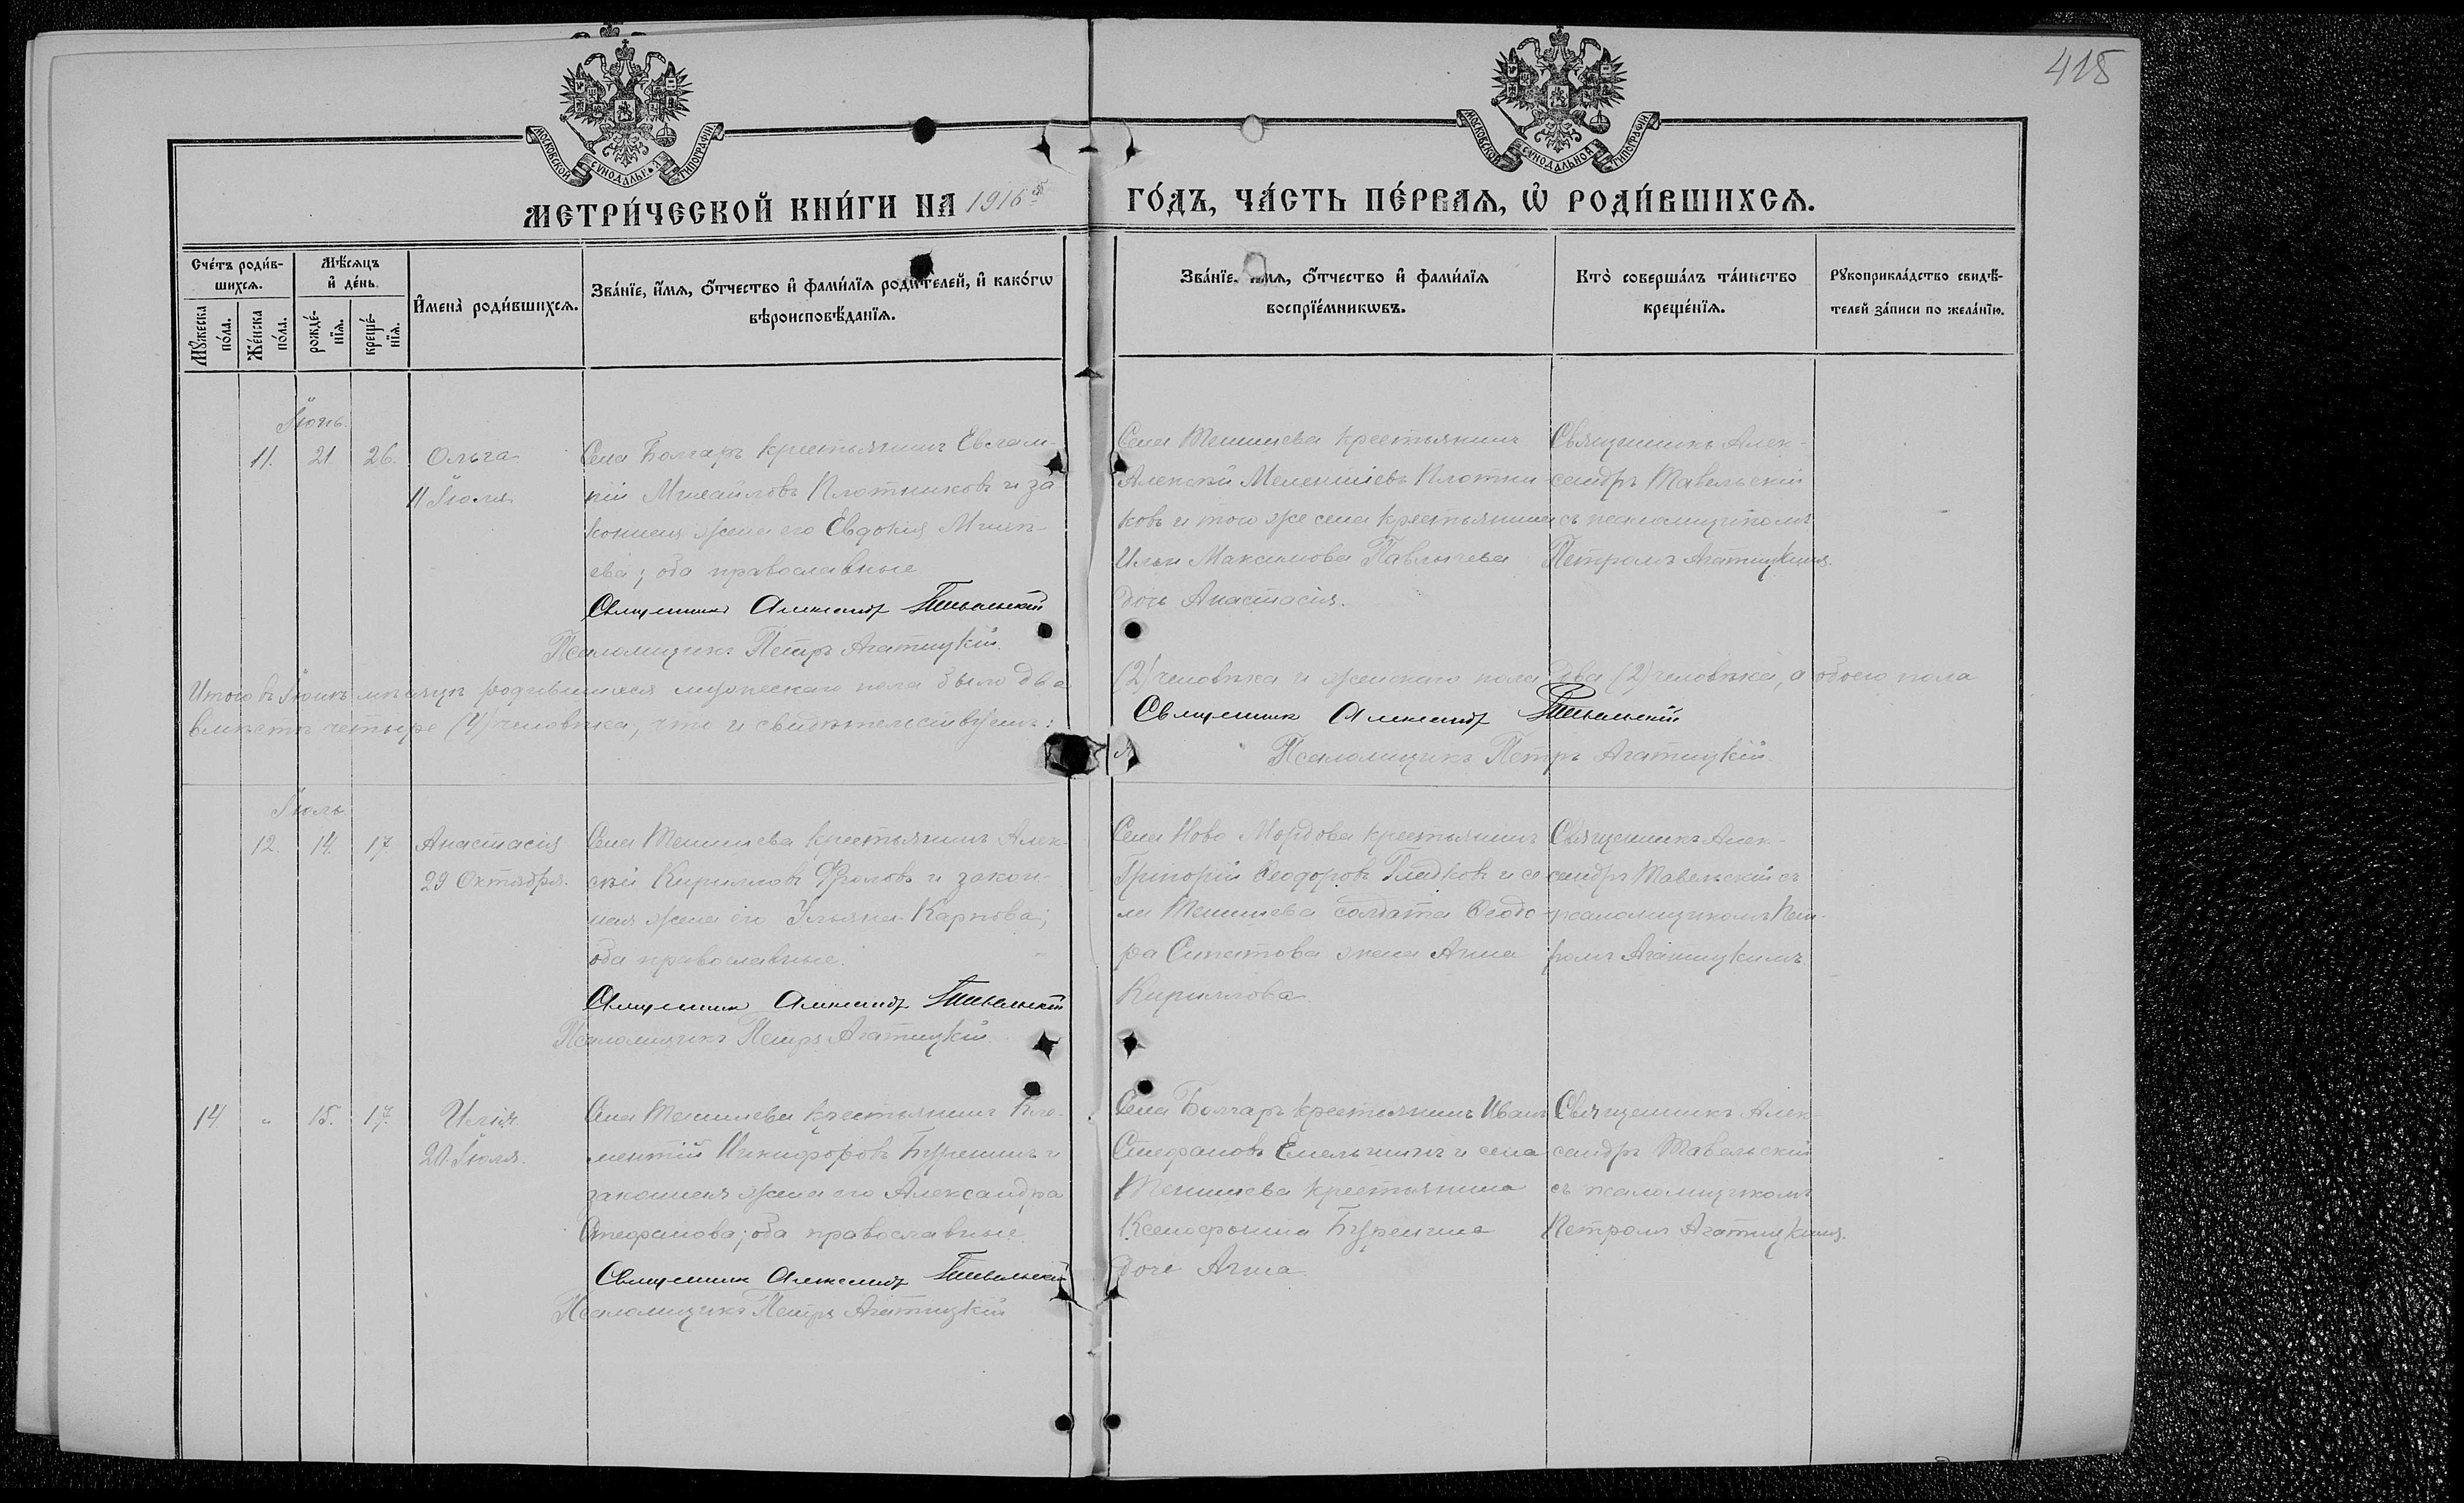 415
МОСКОВСКОЙ СУНОДАЛЬНОЙ ТИПОГРАФІИ
МОСКОВСКОЙ СУНОДАЛЬНОЙ ТИПОГРАФІИ
МЕТРИ́ЧЕСКОЙ КНИ́ГИ НА 1916 ГО́ДЪ, ЧА́СТЬ ПЕ́РВАѦ, Ѡ҆ РОДИ́ВШИХСѦ.
Сче́тъ роди́в-
шихсѧ.
Мꙋ́жеска по́ла.
Же́нска по́ла.
Мѣ́сѧцъ
и҆ де́нь.
рожде́-нїѧ.
креще́-нїѧ.
И҆мена̀ роди́вшихсѧ.
Зва́нїе, и҆́мѧ, ѻ҆́тчество и҆ фами́лїѧ роди́телей, и҆ како́гѡ
вѣроисповѣ́данїѧ.
Зва́нїе, и҆́мѧ, ѻ҆́тчество и҆ фами́лїѧ
воспрїе́мникѡвъ.
Кто̀ соверша́лъ та́инство
креще́нїѧ.
Рꙋкоприкла́дство свидѣ́-
телей за́писи по жела́нїю.
Іюнь.
11. 21 26. Ольга
11 Іюля
Села Болгаръ крестьянинъ Евлам-
пій Михайловъ Плотниковъ и за-
конная жена его Евдокія
ева; оба православные
Священникъ Александр Тавельскій
Псаломщикъ Петръ Агатицкій.
Села Тенишева крестьянинъ
Алексѣй Плотни-
ковъ и того же села крестьянина
Ильи Максимова Павлычева
дочь Анастасія.
Священникъ Алек-
сандръ Тавельскій
съ псаломщикомъ
Петромъ Агатицкимъ.
Итого въ Іюнѣ мѣсяцѣ родившихся мужескаго пола было два (2) человѣка и женскаго пола два (2) человѣка, а обоего пола
вмѣстѣ четыре (4) человѣка, что и свидѣтельствуемъ:
Священник Александр Тавельскій
Псаломщикъ Петръ Агатицкій.
Іюль
12. 14. 17. Анастасія
29 Октября.
Села Тенишева крестьянинъ Алек-
сѣй Кирилловъ Фроловъ и закон-
ная жена его Ульяна Карпова;
оба православные.
Священник Александр Тавельскій
Псаломщикъ Петръ Агатицкій
Села Ново Мордова крестьянинъ
Григорій Ѳеодоровъ Гладковъ и се-
ла Тенишева солдата Ѳеодо-
ра жена Анна
Кириллова
Священникъ Алек-
сандръ Тавельскій съ
псаломщикомъ Пет-
ромъ Агатицкимъ
14. " 15. 17. Илія.
20 Іюля.
Села Тенишева крестьянинъ Кле-
ментій Никифоровъ Буренинъ и
законная жена его Александра
Стефанова; оба православные.
Священник Александр Тавельскій
Псаломщикъ Петръ Агатицкій
Села Болгаръ крестьянинъ Иванъ
Стефановъ Емельянинъ и села
Тенишева крестьянина
Ксенофонта Буренина
дочь Анна
Священникъ Алек-
сандръ Тавельскій
съ псаломщикомъ
Петромъ Агатицкимъ.